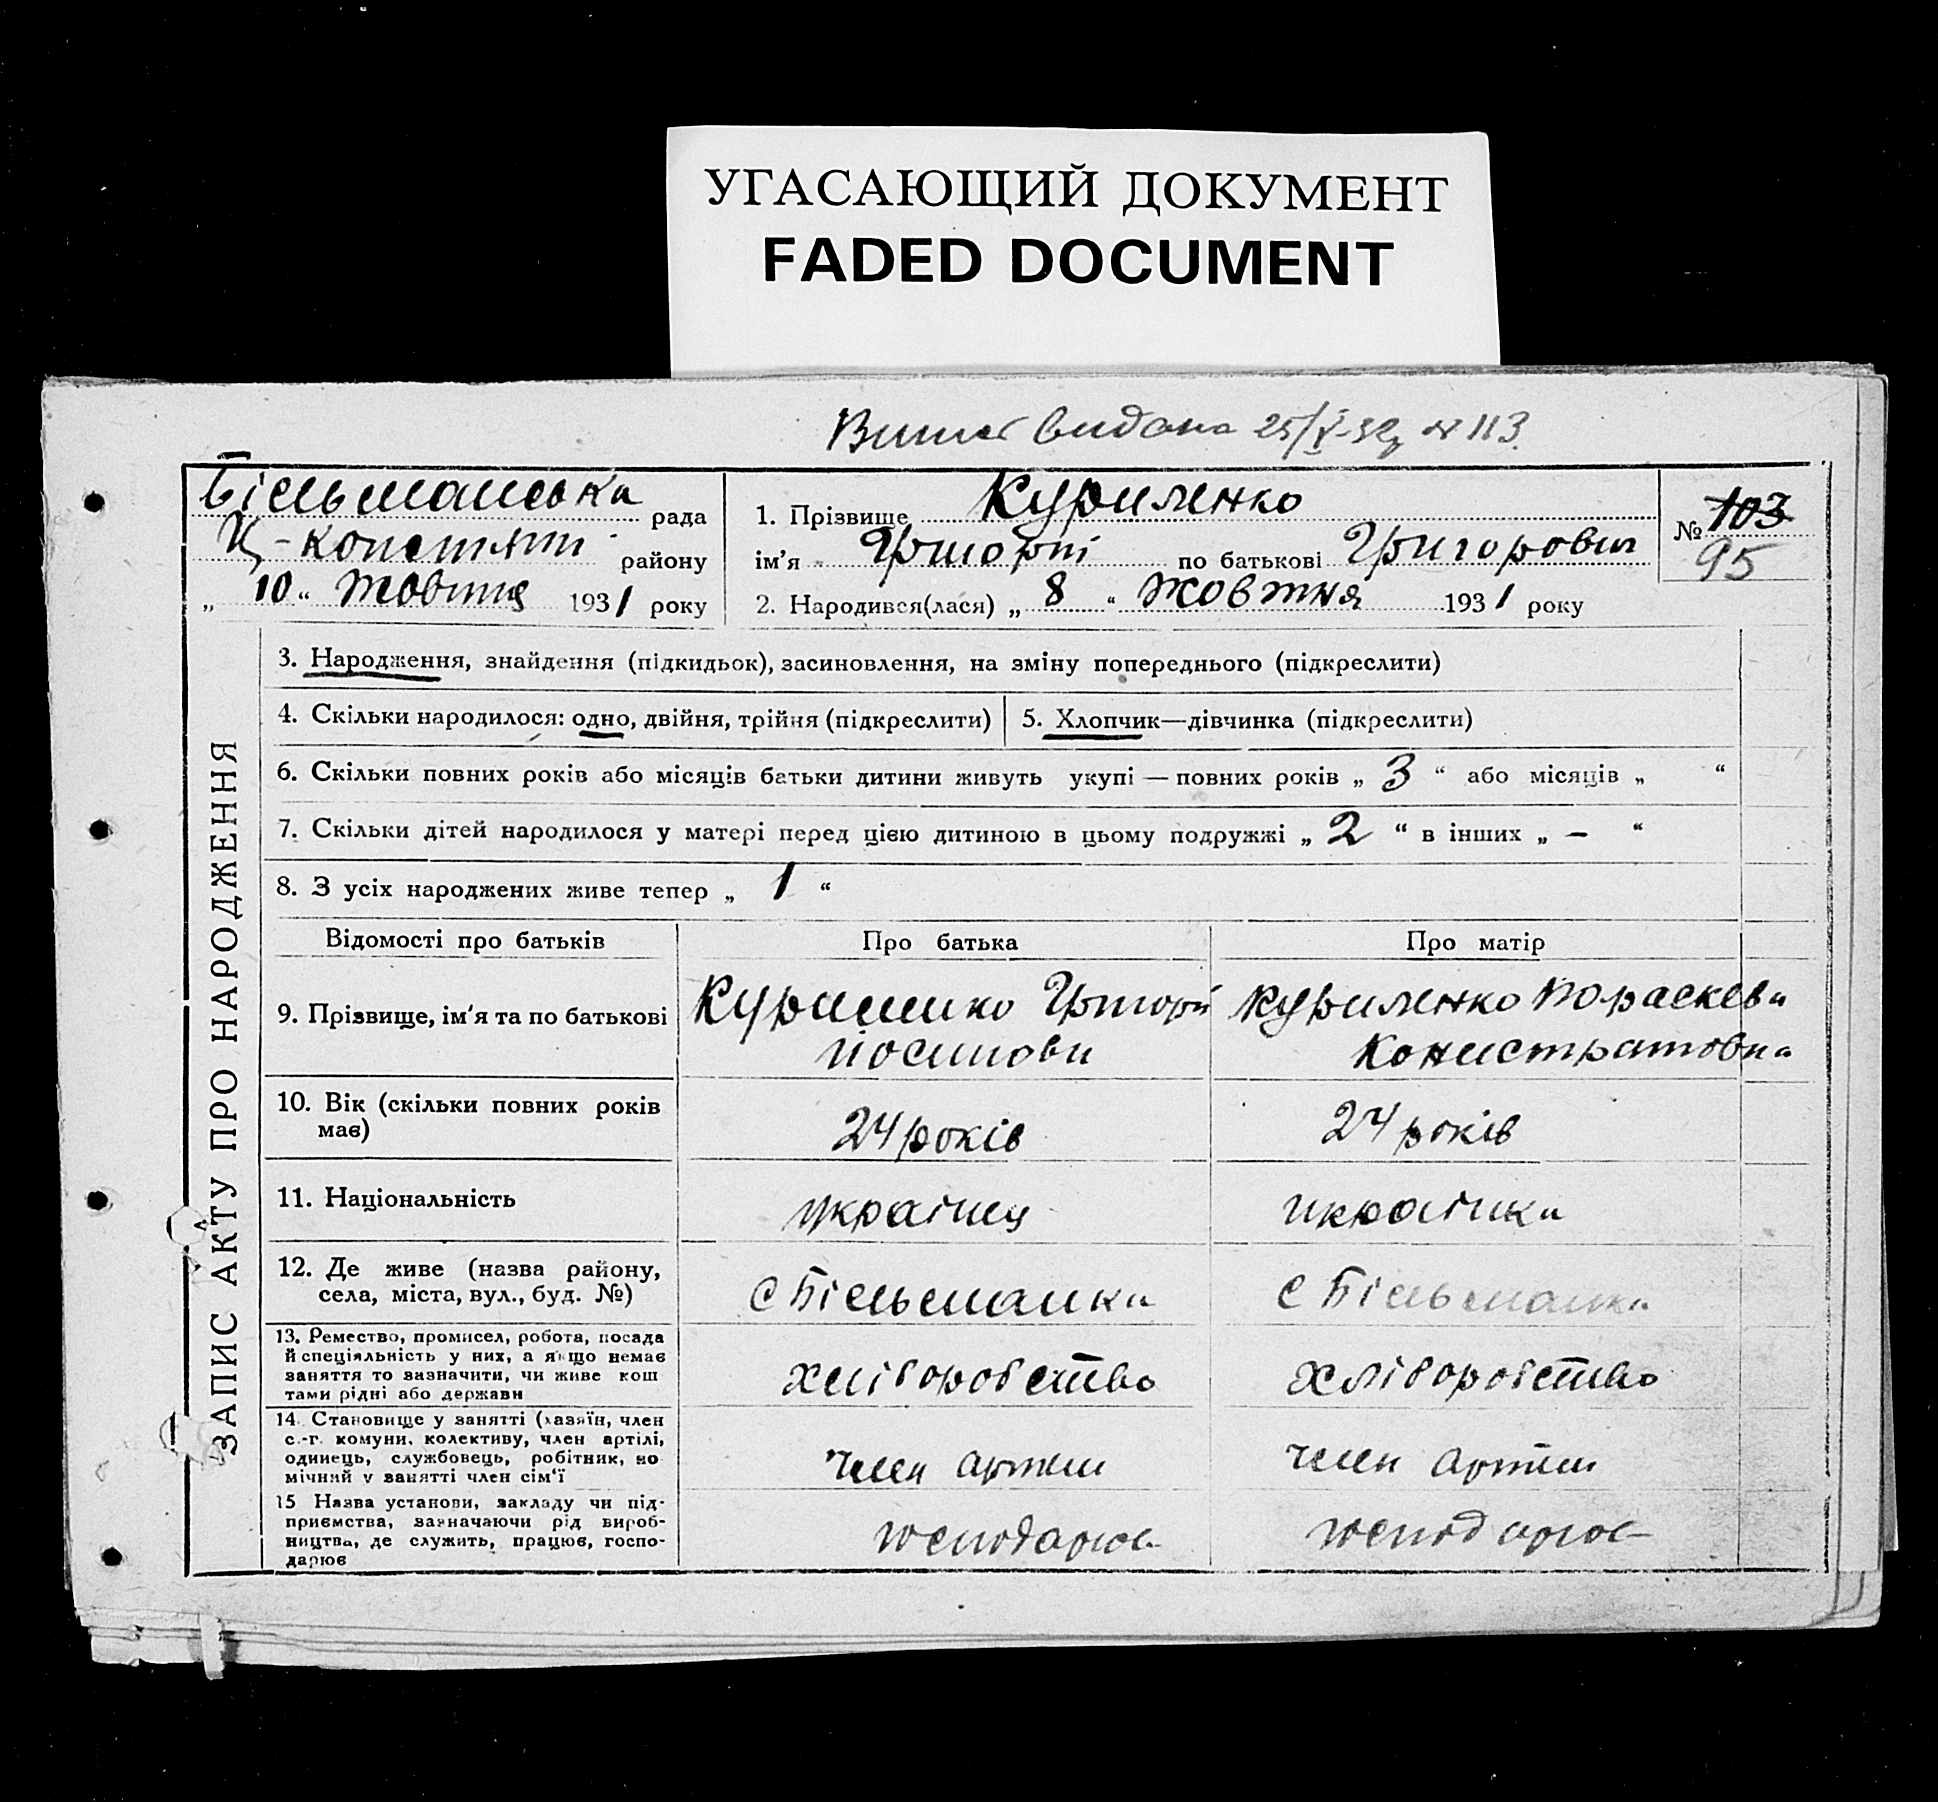 УГАСАЮЩИЙ ДОКУМЕНТ
FADED DOCUMENT
видана 25/V-32 № 113
Більманська рада
Ц-Констянт району
„ 10 “ Жовтня 1931 року
1. Прізвище Куриленко
ім’я Григорій по батькові Григорович
2. Народився(лася) „ 8 “ Жовтня 1931 року
№ 103
95
ЗАПИС АКТУ ПРО НАРОДЖЕННЯ
3. Народження, знайдення (підкидьок), засиновлення, на зміну попереднього (підкреслити)
4. Скільки народилося: одно, двійня, трійня (підкреслити)
5. Хлопчик—дівчинка (підкреслити)
6. Скільки повних років або місяців батьки дитини живуть укупі — повних років „ 3 “ або місяців „ “
7. Скільки дітей народилося у матері перед цією дитиною в цьому подружжі „ 2 “ в інших „ – “
8. З усіх народжених живе тепер „ 1 “
Відомості про батьків
Про батька
Про матір
9. Прізвище, ім’я та по батькові
Куриленко Григорій
Йосипови
Куриленко Параскева
Конистратовна
10. Вік (скільки повних років
має)
24 років
24 років
11. Національність
українец
українка
12. Де живе (назва району,
села, міста, вул., буд. №)
с Більманка
с Більманка
13. Ремество, промисел, робота, посада
й спеціяльність у них, а якщо немає
заняття то зазначити, чи живе кош
тами рідні або держави
хліборобство
хліборобство
14. Становище у занятті (хазяїн, член
с.-г. комуни, колективу, член артілі,
одинець, службовець, робітник, по
мічний у занятті член сім‘ї
член артіли
член артіли
15 Назва установи, закладу чи під-
приємства, зазначаючи рід вироб-
ництва, де служить, працює, госпо-
дарює
господарює
господарює